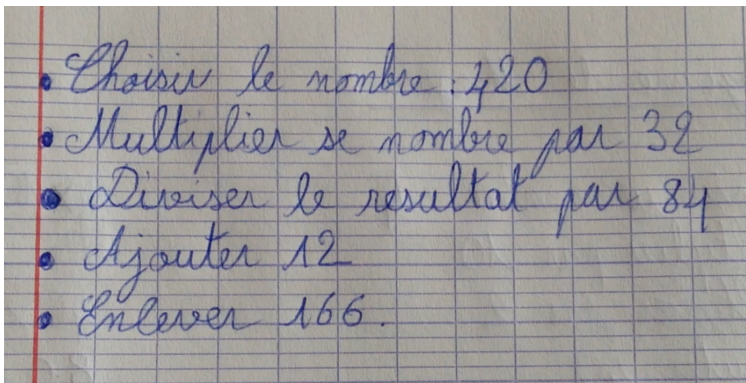 • Choisir le nombre : 420
• Multiplier se nombre par 32
• Diviser le resultat par 84
• Ajouter 12
• Enlever 166.